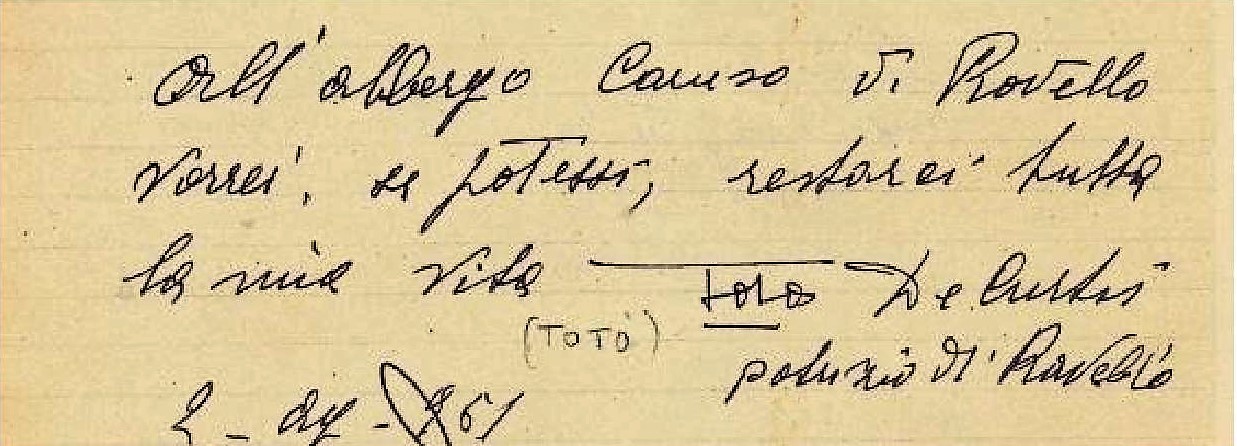 All'albergo Caruso di Ravello
vorrei, se potessi, restarci tutta
la mia vita
Totò De Curtis
(TOTÒ)
patrizio di Ravello
2 -